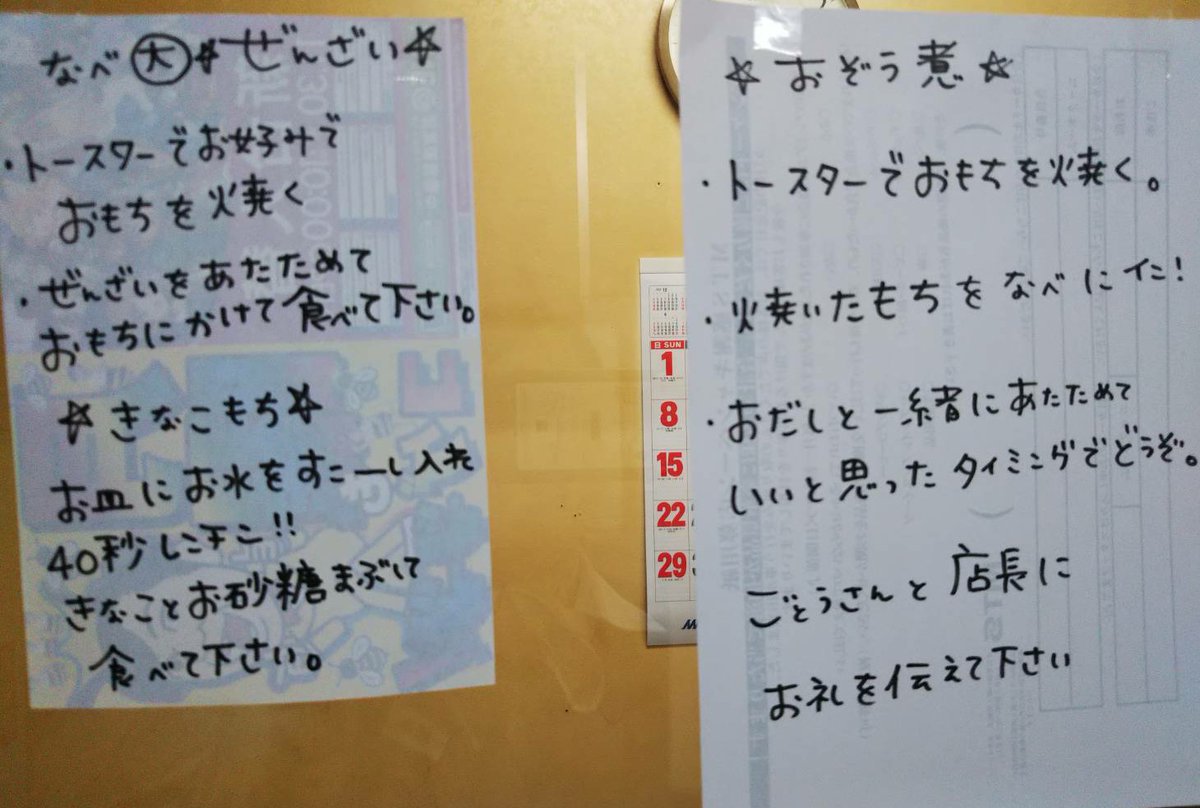 なべ 大 ☆ ぜんざい☆
・トースターでお好みで
おもちを焼く
・ぜんざいをあたためて
おもちにかけて食べて下さい。
☆ きなこもち☆
お皿にお水をすこーし入れ
40秒レンチン!!
きなことお砂糖まぶして
食べて下さい。
☆ おぞう煮 ☆
・トースターでおもちを焼く。
・焼いたもちをなべにイン!
・おだしと一緒にあたためて
いいと思ったタイミングでどうぞ。
ごとうさんと店長に
お礼を伝えて下さい
日 SUN
1
8
15
22
29